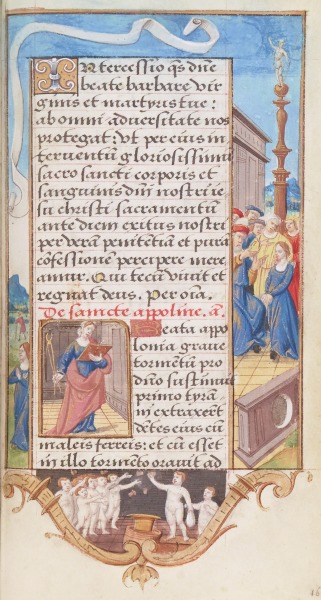 Intercessio qs dn̄e
beate barbare vir
ginis et martyris tue:
ab omni aduersitate nos
protegat: Vt per eius in
teruentū gloriosissimū
sacro sancti corporis et
sanguinis dn̄i nostri ie
su christi sacramentū
ante diem exitus nostri
per verā penitētiā et purā
cōfessionē percipere mere
amur. Qui tecū viuit et
regnat deus. Per oīa.
De saincte appoline. a.
Beata appo
lonia graue
tormentū pro
dn̄o sustinuit
primo tyrā
ni extraxerūt
dētes eius cū
maleis ferreis: et cū esset
in illo tormēto orauit ad